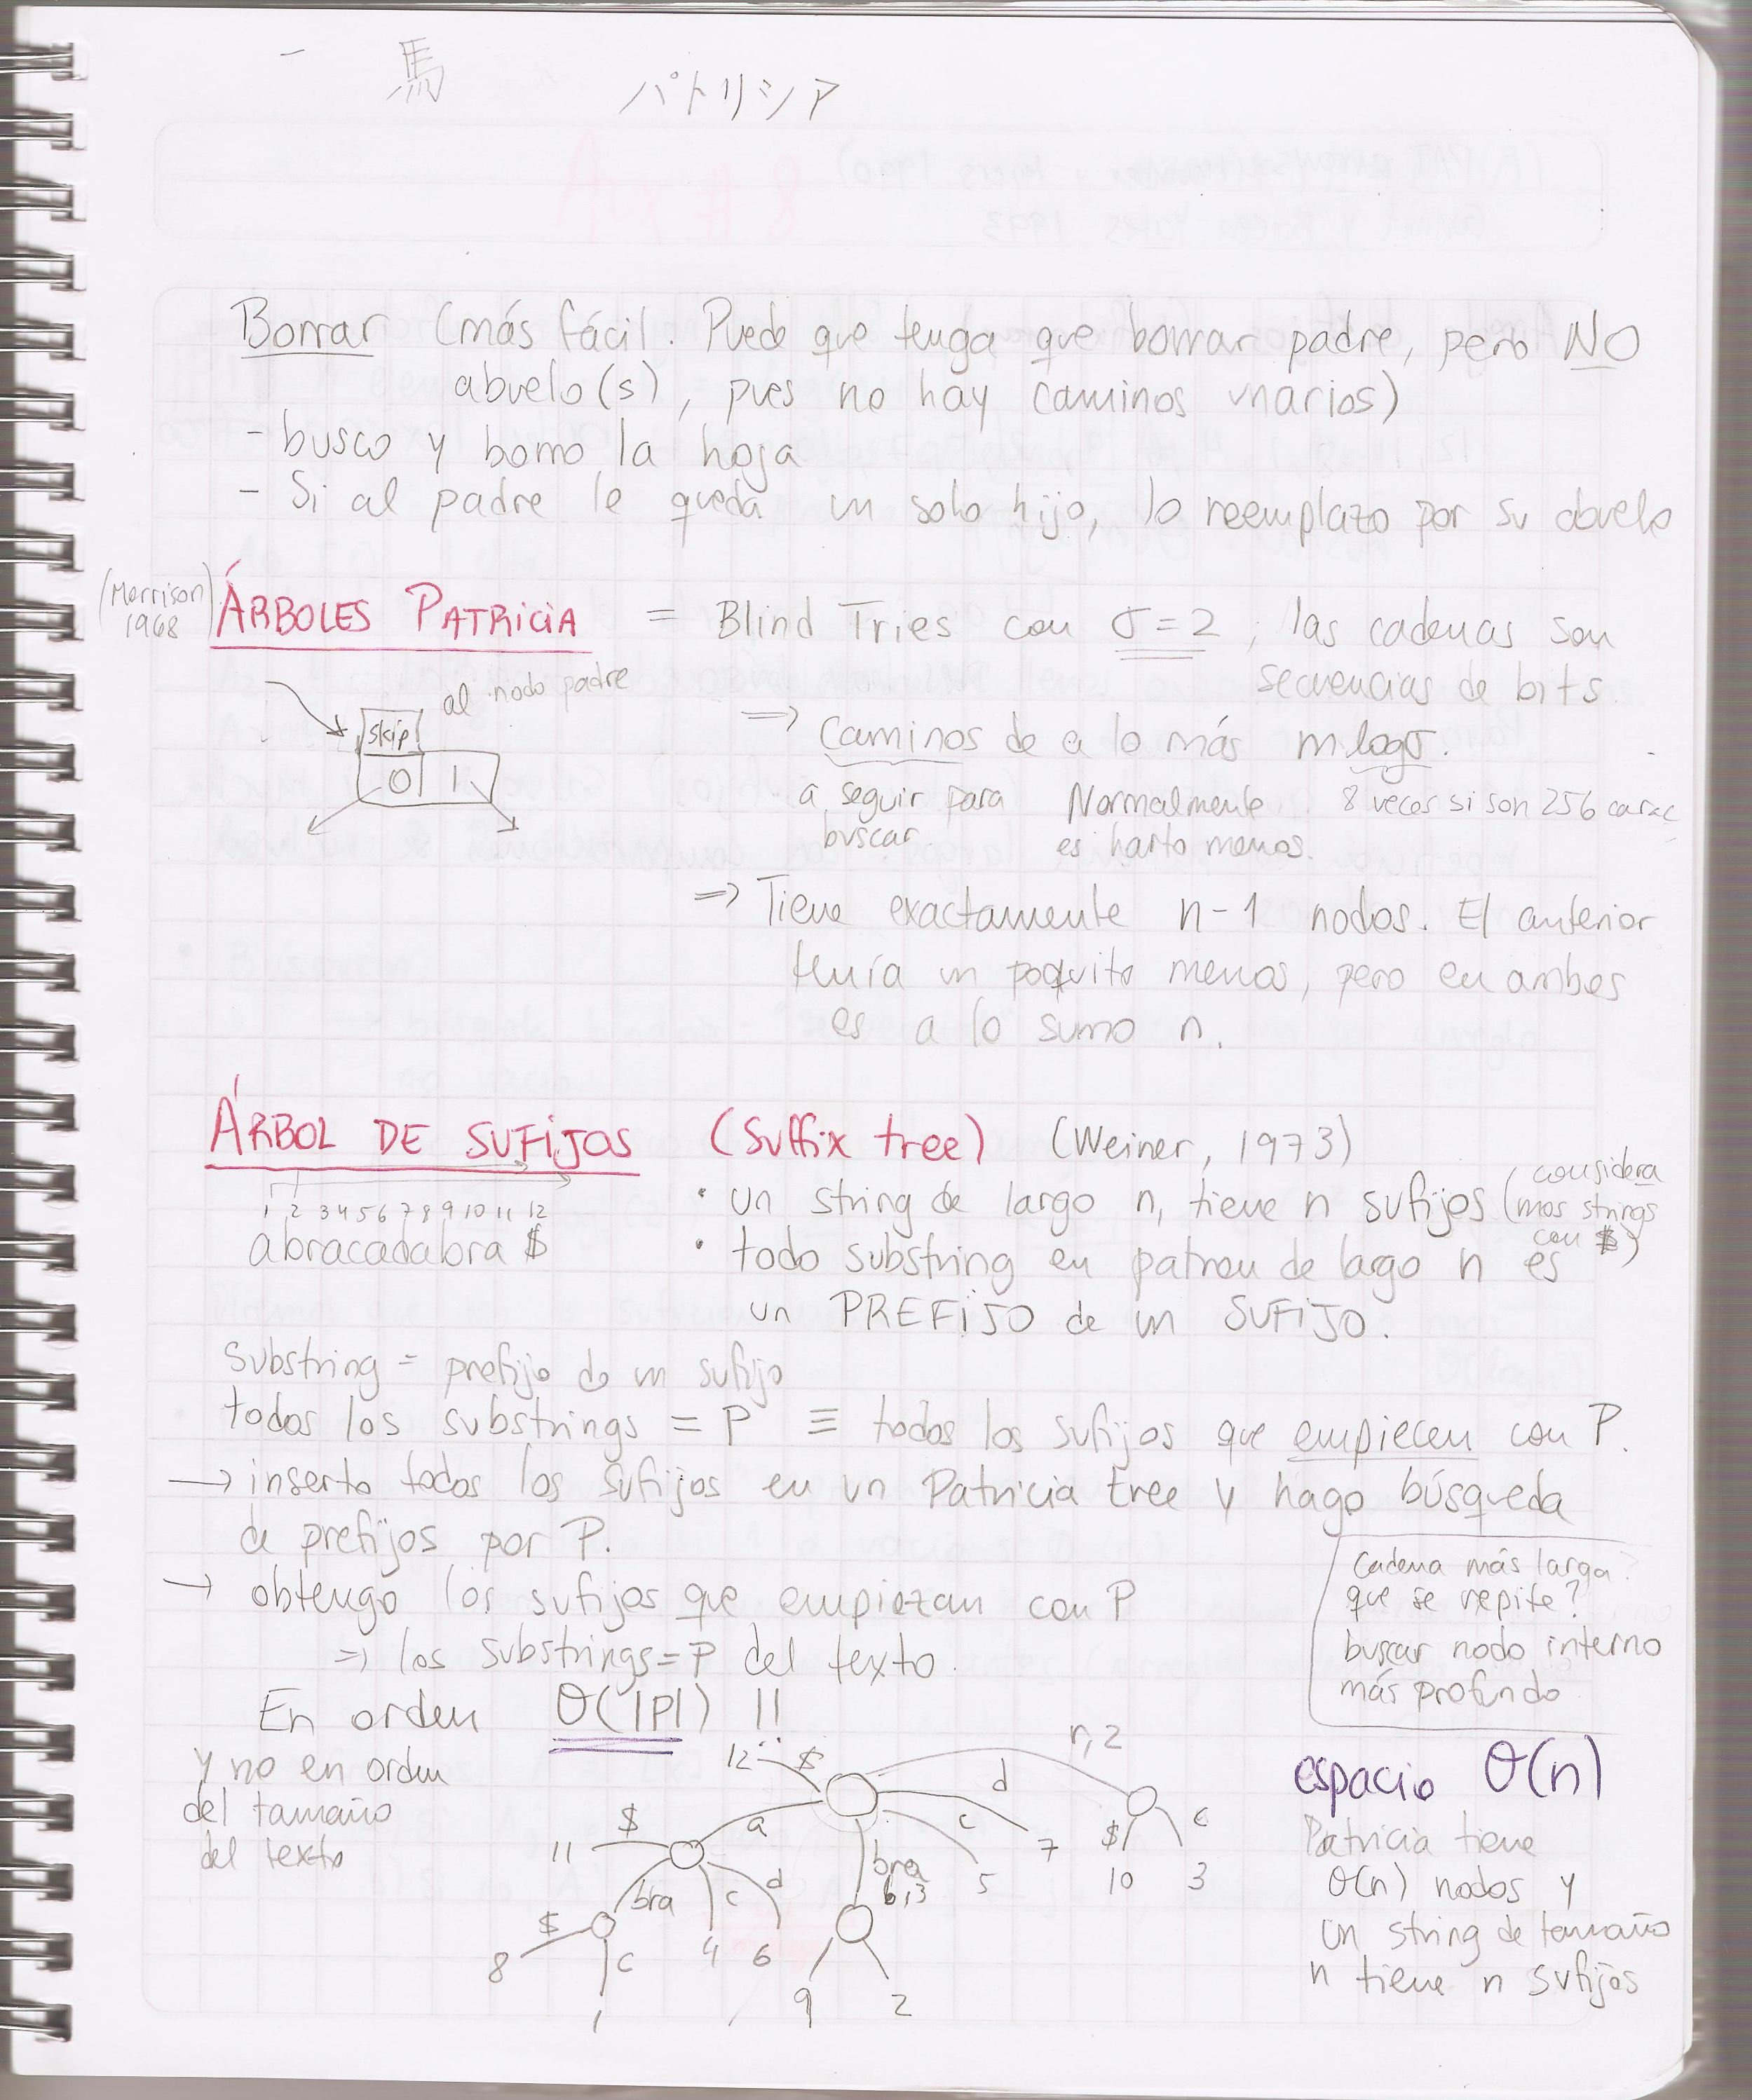 一 馬 パトリシア
Borrar (más fácil. Puede que tenga que borrar padre, pero NO
abuelo(s), pues no hay caminos unarios)
- busco y borro la hoja
- Si al padre le queda un solo hijo, lo reemplazo por su abuelo
(Morrison 1968) ÁRBOLES PATRICIA = Blind Tries con σ=2, las cadenas son
secuencias de bits.
al nodo padre
skip
0 1
=> Caminos de a lo más m logσ.
a seguir para buscar.
Normalmente es harto menos.
8 veces si son 256 carac
=> Tiene exactamente n-1 nodos. El anterior
tenía un poquito menos, pero en ambos
es a lo sumo n.
ÁRBOL DE SUFIJOS (Suffix tree) (Weiner, 1973)
1 2 3 4 5 6 7 8 9 10 11 12
abracadabra $
• un string de largo n, tiene n sufijos (considera
mos strings
con $)
• todo substring en patron de largo n es
un PREFIJO de un SUFIJO.
Substring = prefijo de un sufijo
todos los substrings = P ≡ todos los sufijos que empiecen con P.
→ inserto todos los sufijos en un Patricia tree y hago búsqueda
de prefijos por P.
→ obtengo los sufijos que empiezan con P
=> los substrings=P del texto.
Cadena más larga
que se repite?
buscar nodo interno
más profundo
En orden O(|P|) !!
y no en orden
del tamaño
del texto
12 $ r,2
d
$ a c
11 7 $ c
bra c d bra 5 10 3
b,3
$ 4 6
8 c 9 2
1
espacio O(n)
Patricia tiene
O(n) nodos y
un string de tamaño
n tiene n sufijos